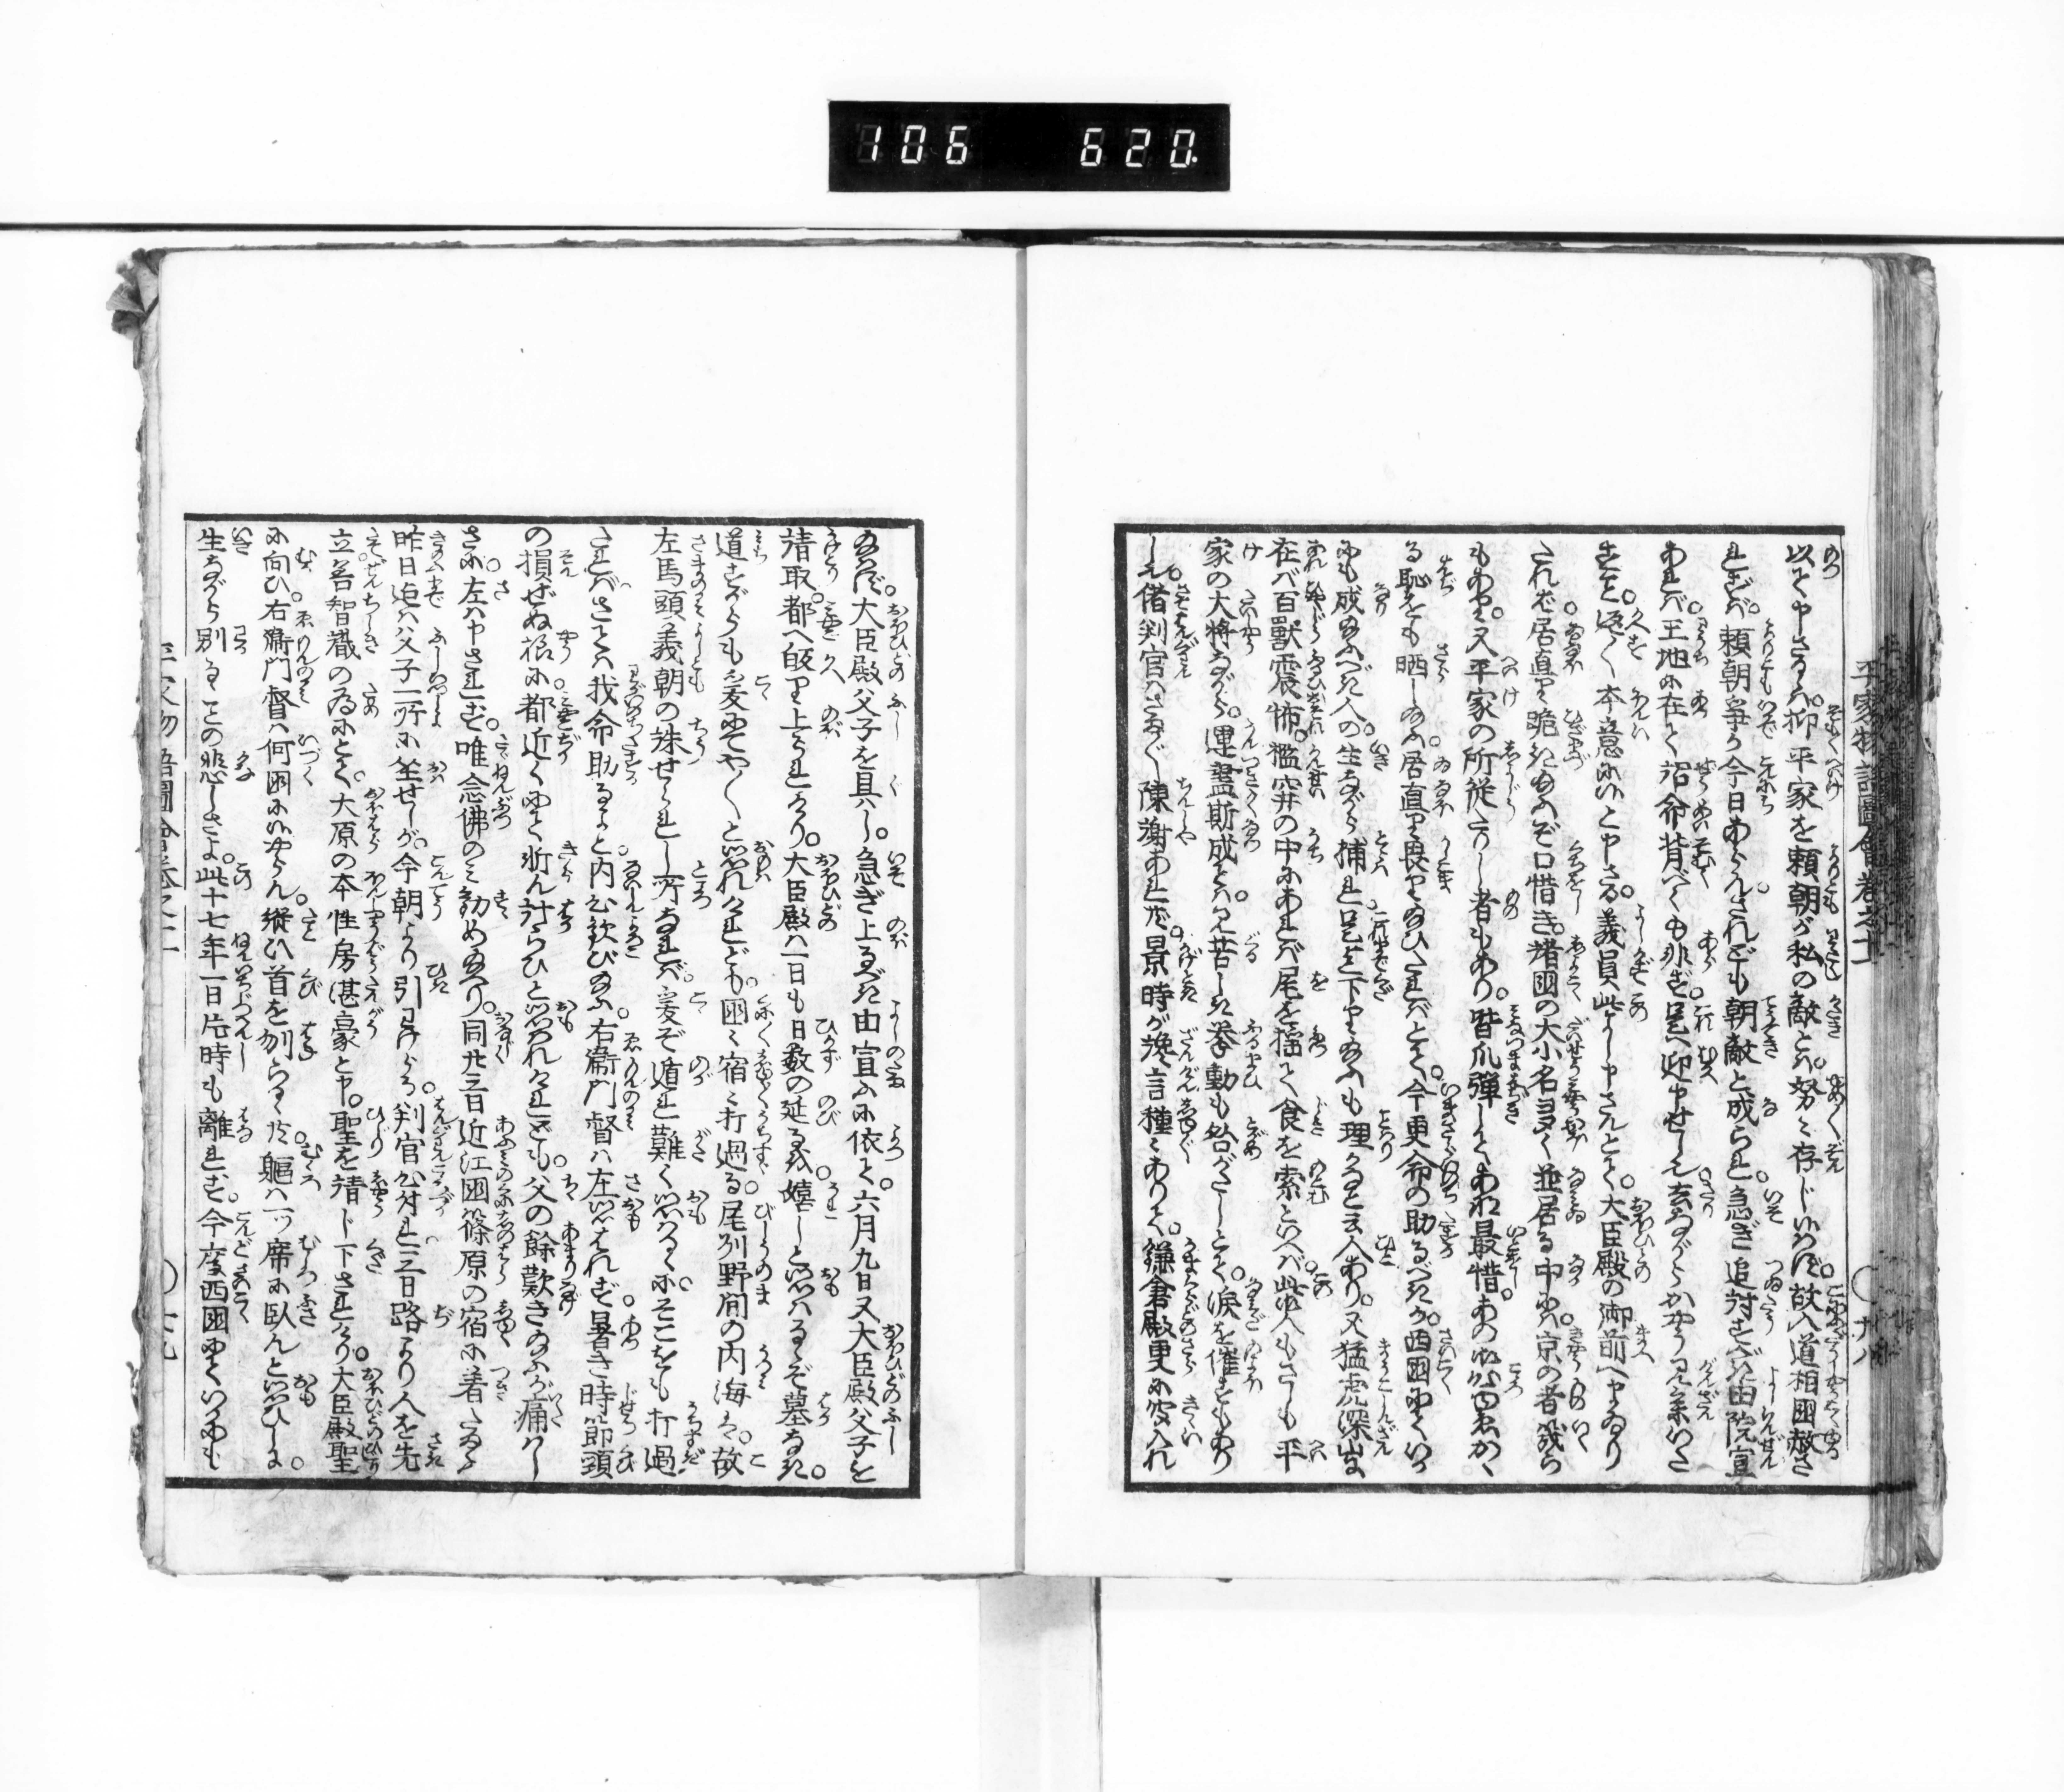 106 620.
平家物語圖會巻之十
以て申さるハ。抑平家を頼朝が私の敵とハ。努々存じ候はず。故入道相國赦さ
れずバ。頼朝争か今日あらん。されども朝敵と成られ。急ぎ追討すべき由院宣
あれバ。王地に在て詔命背べくも非ず。是へ迎申せし也。去ながらかやう見参いた
す。返〻本意に候と申さる。義員此よし申さんとて。大臣殿の御前へまゐり
たれバ。居直り跪き給ふぞ口惜き。諸國の大小名多く並居る中に。京の者幾ら
もあり。又平家の所従たりし者もあり。皆爪弾してあな最惜。あの御心ゆゑかく
る恥をも晒し給ふ。居直り畏り給ひたれバとて。今更命の助るべきか。西國にていか
にも成給ふべき人の。生ながら捕れ是迄下り給ふも理かなと云人あり。又猛虎深山に
在バ百獣震怖。檻穽の中にあれバ尾を揺て食を索といへバ。此人もさしも平
家の大将ながら。運盡斯成てハ。苦しき挙動も咎がたしとて。涙を催すもあり
し也。偖判官ハさまざま陳謝あれど。景時が讒言種々ありて。鎌倉殿更に受入れ
給はず。大臣殿父子を具ハし。急ぎ上るべき由宣ふに依て。六月九日又大臣殿父子を
請取。都へ皈り上られけり。大臣殿ハ一日も日数の延るを。嬉しと思ハるゝぞ墓なき。
道すがらも爰にてやゝと思れけれども。國々宿々打過る。尾刕野間の内海ハ。故
左馬頭義朝の誅せられし所なれバ。爰ぞ遁れ難く思ハるゝに。そこをも打過
たれバ。さてハ我命助るよと。内心欽び給ふ。右衛門督ハ左思はれず。暑き時節頭
の損ぜぬ様に。都近くにて斬ん計らひと思われけれども。父の餘歎き給ふが痛ハし
さに。左ハ申されず。唯念佛のミ勧め給へり。同廿三日近江國篠原の宿に着たまふ
昨日迄ハ父子一所に坐せしが。今朝より引わけらる。判官公対れ三日路より人を先
立善智識の為にとて。大原の本性房湛豪と申。聖を請じ下されけり。大臣殿聖
に向ひ。右衛門督ハ何國に候やらん。縦ひ首を刎らるゝ共。軀ハ一ツ席に臥んと思ひしに。
生ながら別るゝ事の悲しさよ。此十七年一日片時も離れず。今度西國にていかにも